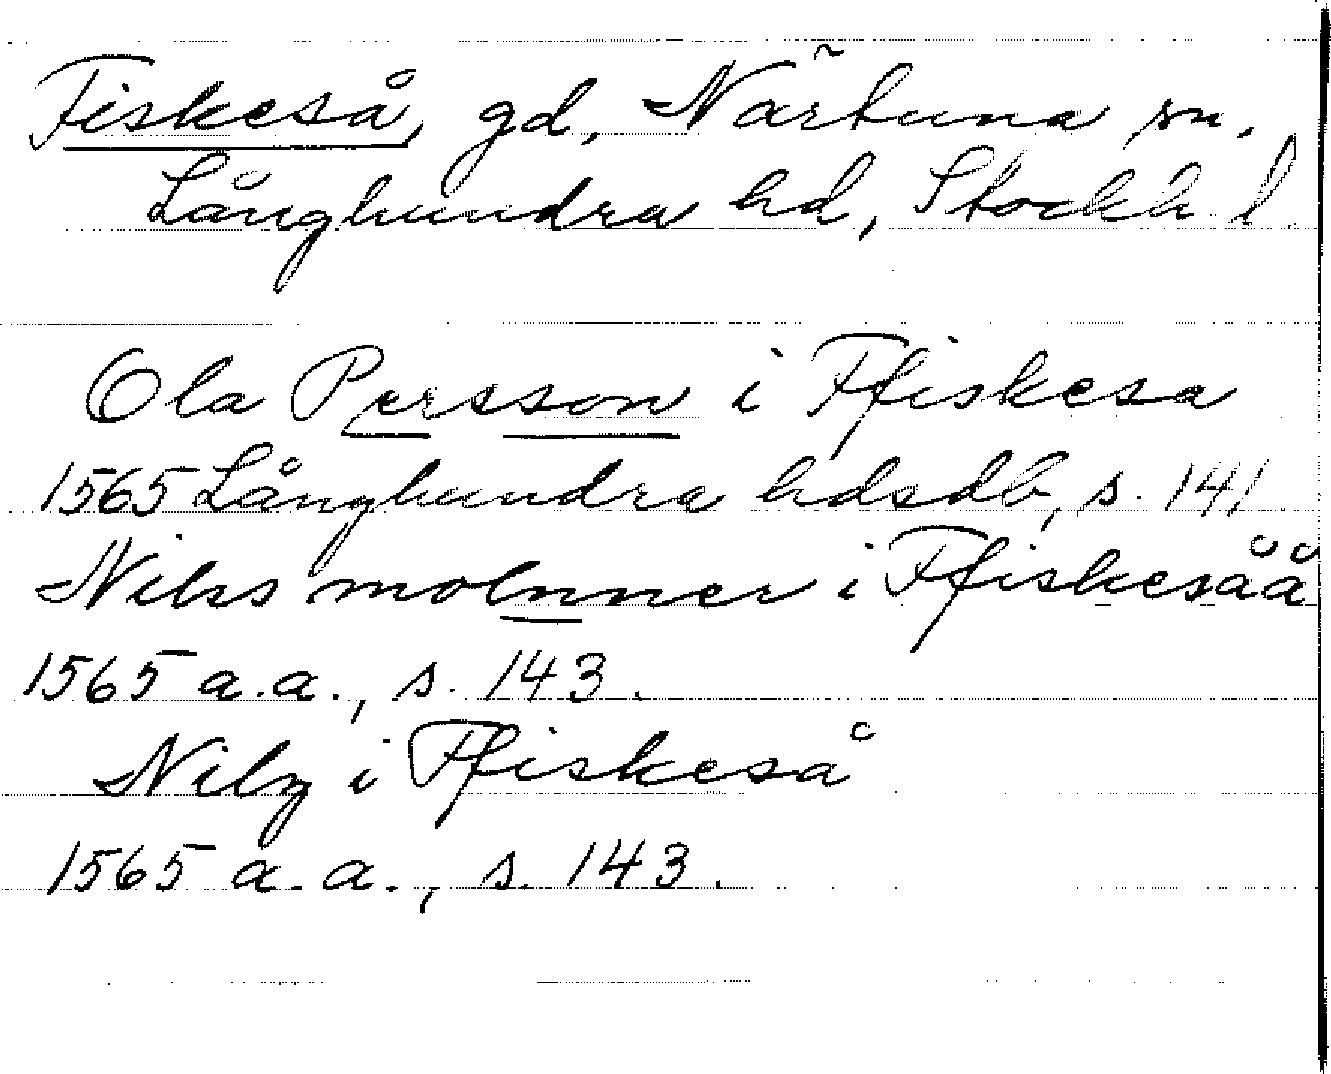 Fiskeså, gd, Närtuna sn.
Långhundra hd, Stockh l.
Ola Persson i Ffiskesa
1565 Långhundra hdsdb, s. 141.
Nilss molnner i Ffiskesåå
1565 a.a., s. 143.
Nilz i Ffiskeså
1565 a.a., s. 143.